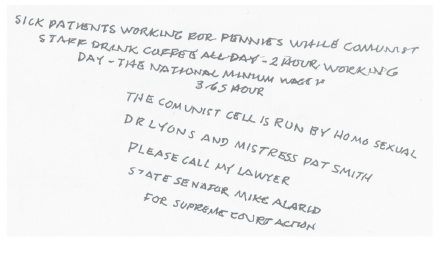 SICK PATIENTS WORKING FOR PENNIES WHILE COMUNIST
STAFF DRINK COFFEE ALL DAY - 2 HOUR WORKING
DAY - THE NATIONAL MINIUM WAGE IS
3.65 HOUR
THE COMUNIST CELL IS RUN BY HOMO SEXUAL
DR LYONS AND MISTRESS PAT SMITH
PLEASE CALL MY LAWYER
STATE SENATOR MIKE ALARID
FOR SUPREME COURT ACTION